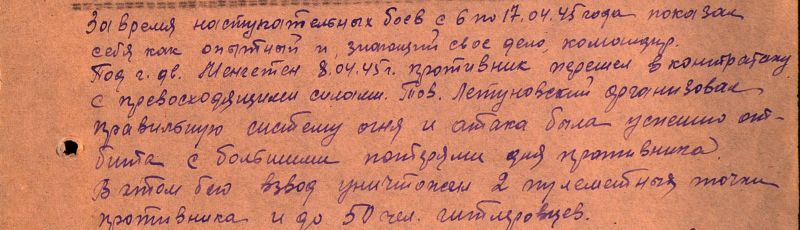 За время наступательных боев с 6 по 17.04.45 года показал
себя как опытный и, знающий свое дело, командир.
Под г. дв. Менгетен 8.04.45 г. противник перешел в контратаку
с превосходящими силами. Тов. Летуновский организовал
правильную систему огня и атака была успешно от-
бита с большими потерями для противника.
В этом бою взвод уничтожил 2 пулеметные точки
противника и до 50 чел. гитлеровцев.